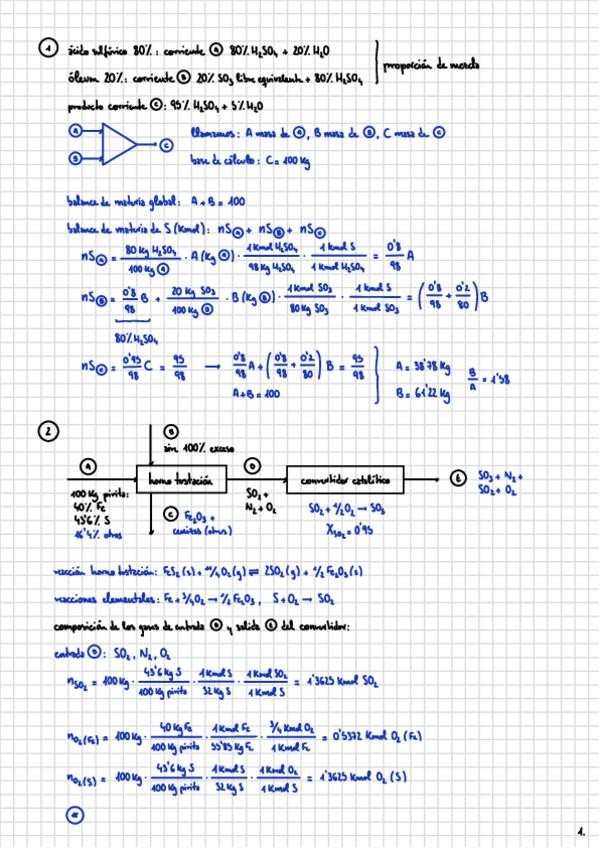 1 ácido sulfúrico 80%: corriente A 80% H₂SO₄ + 20% H₂O
óleum 20%: corriente B 20% SO₃ libre equivalente + 80% H₂SO₄
proporción de mezcla
producto corriente C: 95% H₂SO₄ + 5% H₂O
A
B
C
llamamos: A masa de A, B masa de B, C masa de C
base de cálculo: C = 100 Kg
balance de materia global: A + B = 100
balance de materia de S (Kmol): nS A + nS B = nS C
nS A = 80 Kg H₂SO₄ / 100 Kg A · A (Kg A) · 1 Kmol H₂SO₄ / 98 Kg H₂SO₄ · 1 Kmol S / 1 Kmol H₂SO₄ = 0'8/98 A
nS B = 0'8/98 B + 20 Kg SO₃ / 100 Kg B · B (Kg B) · 1 Kmol SO₃ / 80 Kg SO₃ · 1 Kmol S / 1 Kmol SO₃ = (0'8/98 + 0'2/80) B
80% H₂SO₄
nS C = 0'95/98 C = 95/98 → 0'8/98 A + (0'8/98 + 0'2/80) B = 95/98
A + B = 100
A = 38'78 Kg
B = 61'22 Kg
B/A = 1'58
2
B
aire 100% exceso
A
100 Kg pirita:
40% Fe
43'6% S
16'4% otros
horno tostación
D
SO₂ +
N₂ + O₂
convertidor catalítico
E SO₃ + N₂ +
SO₂ + O₂
C Fe₂O₃ +
cenizas (otros)
SO₂ + 1/2 O₂ → SO₃
X SO₂ = 0'95
reacción horno tostación: FeS₂ (s) + 11/4 O₂ (g) ⇌ 2SO₂ (g) + 1/2 Fe₂O₃ (s)
reacciones elementales: Fe + 3/4 O₂ → 1/2 Fe₂O₃, S + O₂ → SO₂
composición de los gases de entrada D y salida E del convertidor:
entrada D: SO₂, N₂, O₂
n SO₂ = 100 Kg · 43'6 Kg S / 100 Kg pirita · 1 Kmol S / 32 Kg S · 1 Kmol SO₂ / 1 Kmol S = 1'3625 Kmol SO₂
n O₂ (Fe) = 100 Kg · 40 Kg Fe / 100 Kg pirita · 1 Kmol Fe / 55'85 Kg Fe · 3/4 Kmol O₂ / 1 Kmol Fe = 0'5372 Kmol O₂ (Fe)
n O₂ (S) = 100 Kg · 43'6 Kg S / 100 Kg pirita · 1 Kmol S / 32 Kg S · 1 Kmol O₂ / 1 Kmol S = 1'3625 Kmol O₂ (S)
1.